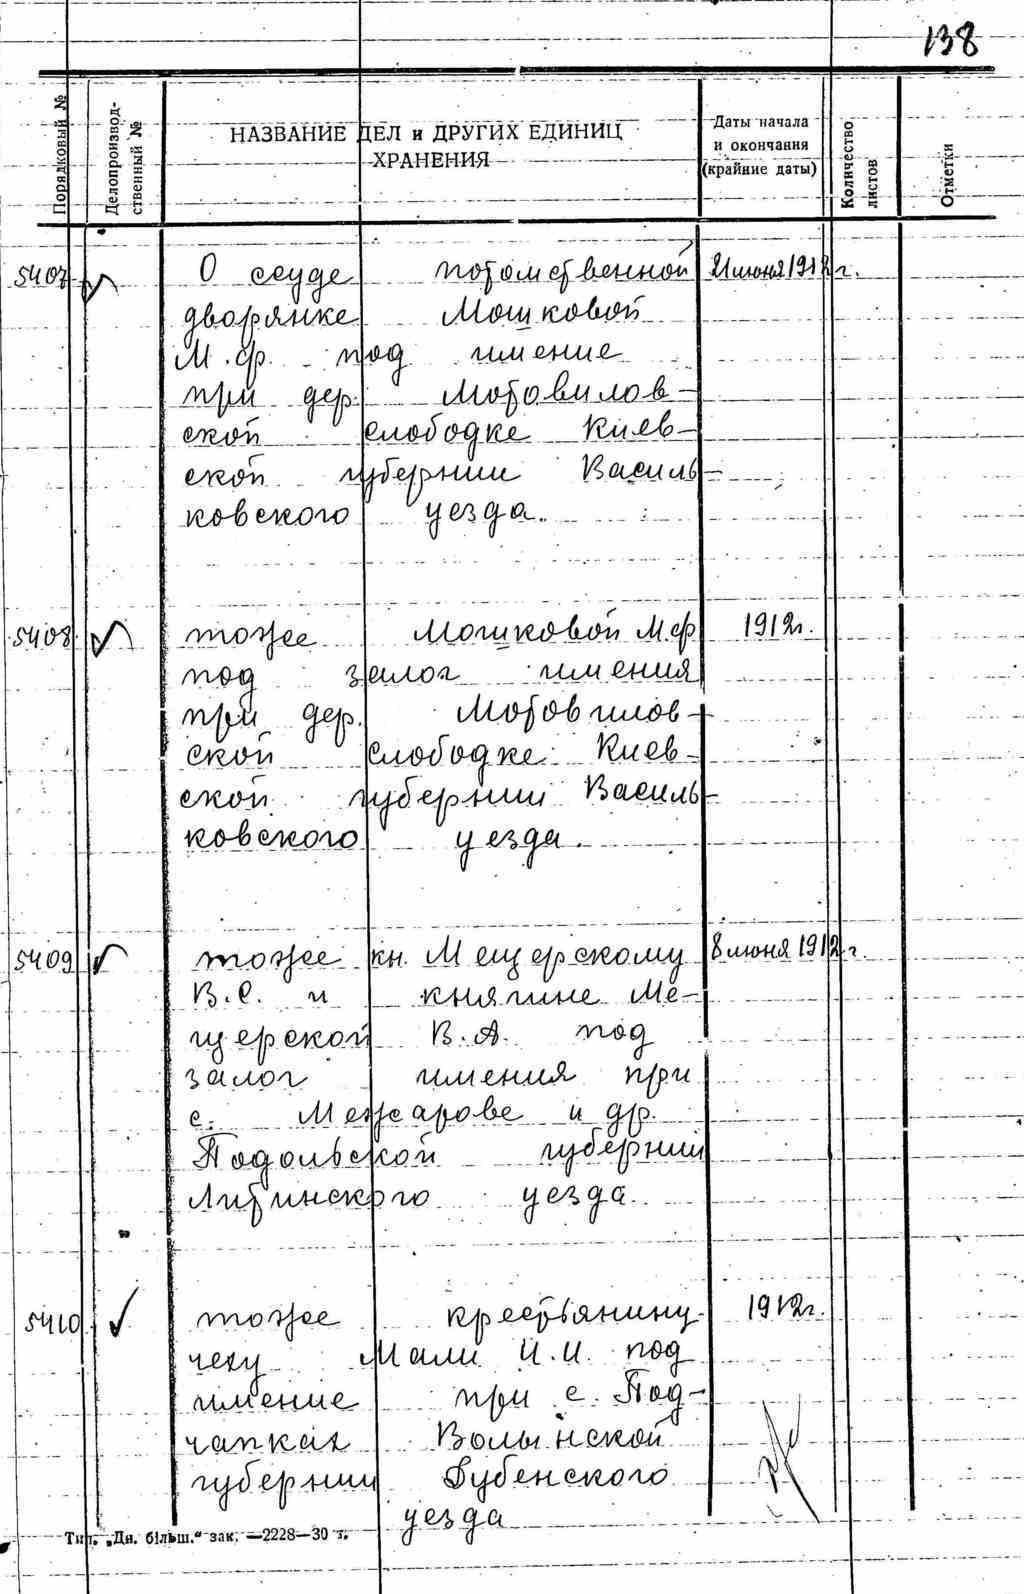 138
Порядковый №
Делопроизвод-
ственный №
НАЗВАНИЕ ДЕЛ и ДРУГИХ ЕДИНИЦ
ХРАНЕНИЯ
Даты начала
и окончания
(крайние даты)
Количество
листов
Отметки
5407 О ссуде потомственной 21 июня 1912 г.
дворянке Мошковой
М.ф. под имение
при дер. Мотовилов-
ской слободке Киев-
ской губернии Василь-
ковского уезда.
5408 тоже Мошковой М.ф 1912г.
под залог имения
при дер. Мотовилов-
ской слободке Киев-
ской губернии Василь-
ковского уезда.
5409 тоже кн. Мещерскому 8 июня 1912 г.
В.С. и княгине Ме-
щерской В.А. под
залог имения при
с. Межарове и др.
Подольской губернии
Литинского уезда.
5410 тоже крестьянину 1912г.
чеху Мали И.И. под
имение при с. Под-
чапках Волынской
губернии Дубенского
уезда
Тип. „Дн. більш.“ зак. —2228—30 г.